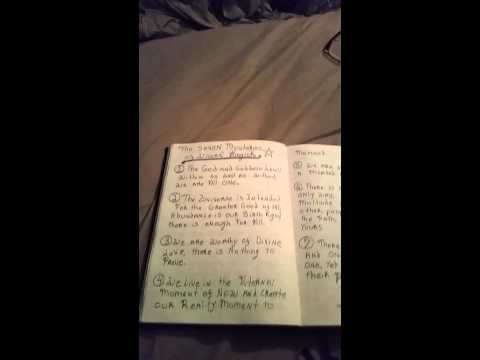 The Seven Mysteries
of Wiccan Magick
① The God and Goddess Dwell
Within as well as without
We are All One.
② The Universe is Intended
For the Greater Good of All
Abundance is our Birth Right
there is enough For All.
③ We are Worthy of Divine
Love, there is Nothing to
Prove.
④ We Live in the Eternal
Moment of NOW And Create
our Reality Moment to
Moment.
⑤ We are
⑥ There is
only
other
the Path
⑦ There
And
One, Yet
their